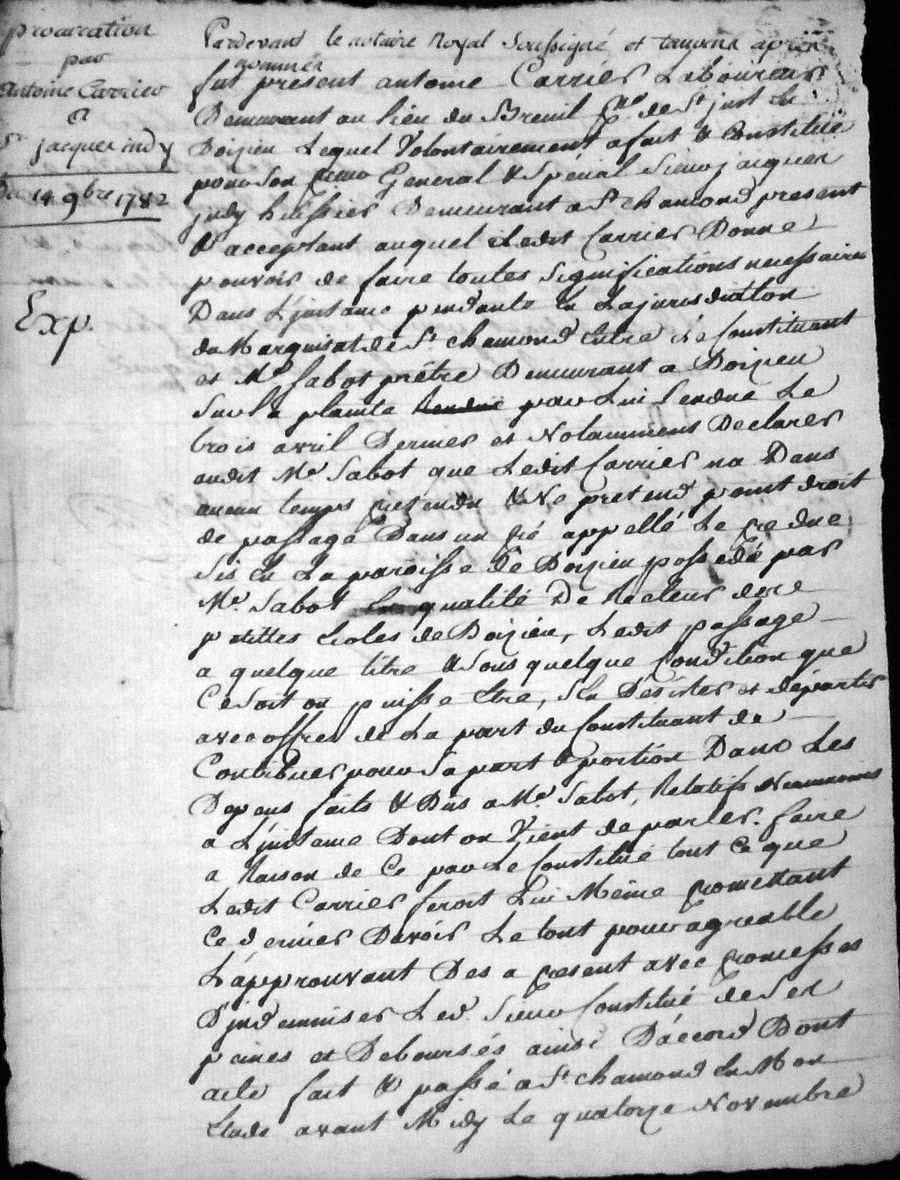 procuration
par
Antoine Carrier
a
Sr jacques judy
Du 14 9bre 1782
Exp.
Pardevant le notaire Royal soussigné et temoins apres
nommés
fut present antoine Carrier Laboureur
Demeurant au lieu du Breuil psse de St just En
Doizieu Lequel Volontairement a fait & Constitué
pour son procur General & Spécial Sieur jacques
judy huissier Demeurant a St chamond present
& acceptant auquel Ledit Carrier Donne
pouvoir de faire toutes significations necessaires
Dans L'jnstance pendante En La jurisdiction
du Marquisat de St chamond Entre Le Constituant
et Mre Sabot prêtre Demeurant a Doizieu
Sur la plainte par Lui rendue Le
trois avril Dernier et Notamment Declarer
audit Mre Sabot que Ledit Carrier na Dans
aucun temps pretendu & Ne pretend point droit
de passage Dans un pré appellé Le
Sis En La paroisse de Doizieu possedé par
Mre Sabot En qualité De Recteur des
petittes Ecoles de Doizieu, Ledit passage
a quelque titre & sous quelque Condition que
Ce soit ou puisse Etre, s'En Désister et départir
avec offres de La part du Constituant de
Contribuer pour Sa part & portion Dans Les
Depens faits & Dus a Mre Sabot, Relatifs
a L'jnstance Dont on Vient de parler. faire
a Raison de Ce par Le Constitué tout Ce que
Ledit Carrier feroit Lui Même promettant
Ce dernier Davoir Le tout pour agreable
L'approuvant Des a present avec promesses
D'jndemniser Led. Sieur Constitué de Ses
paines et Deboursés ainsi D'accord Dont
acte fait & passé a St chamond En Mon
Etude avant Midy Le quatorze Novembre